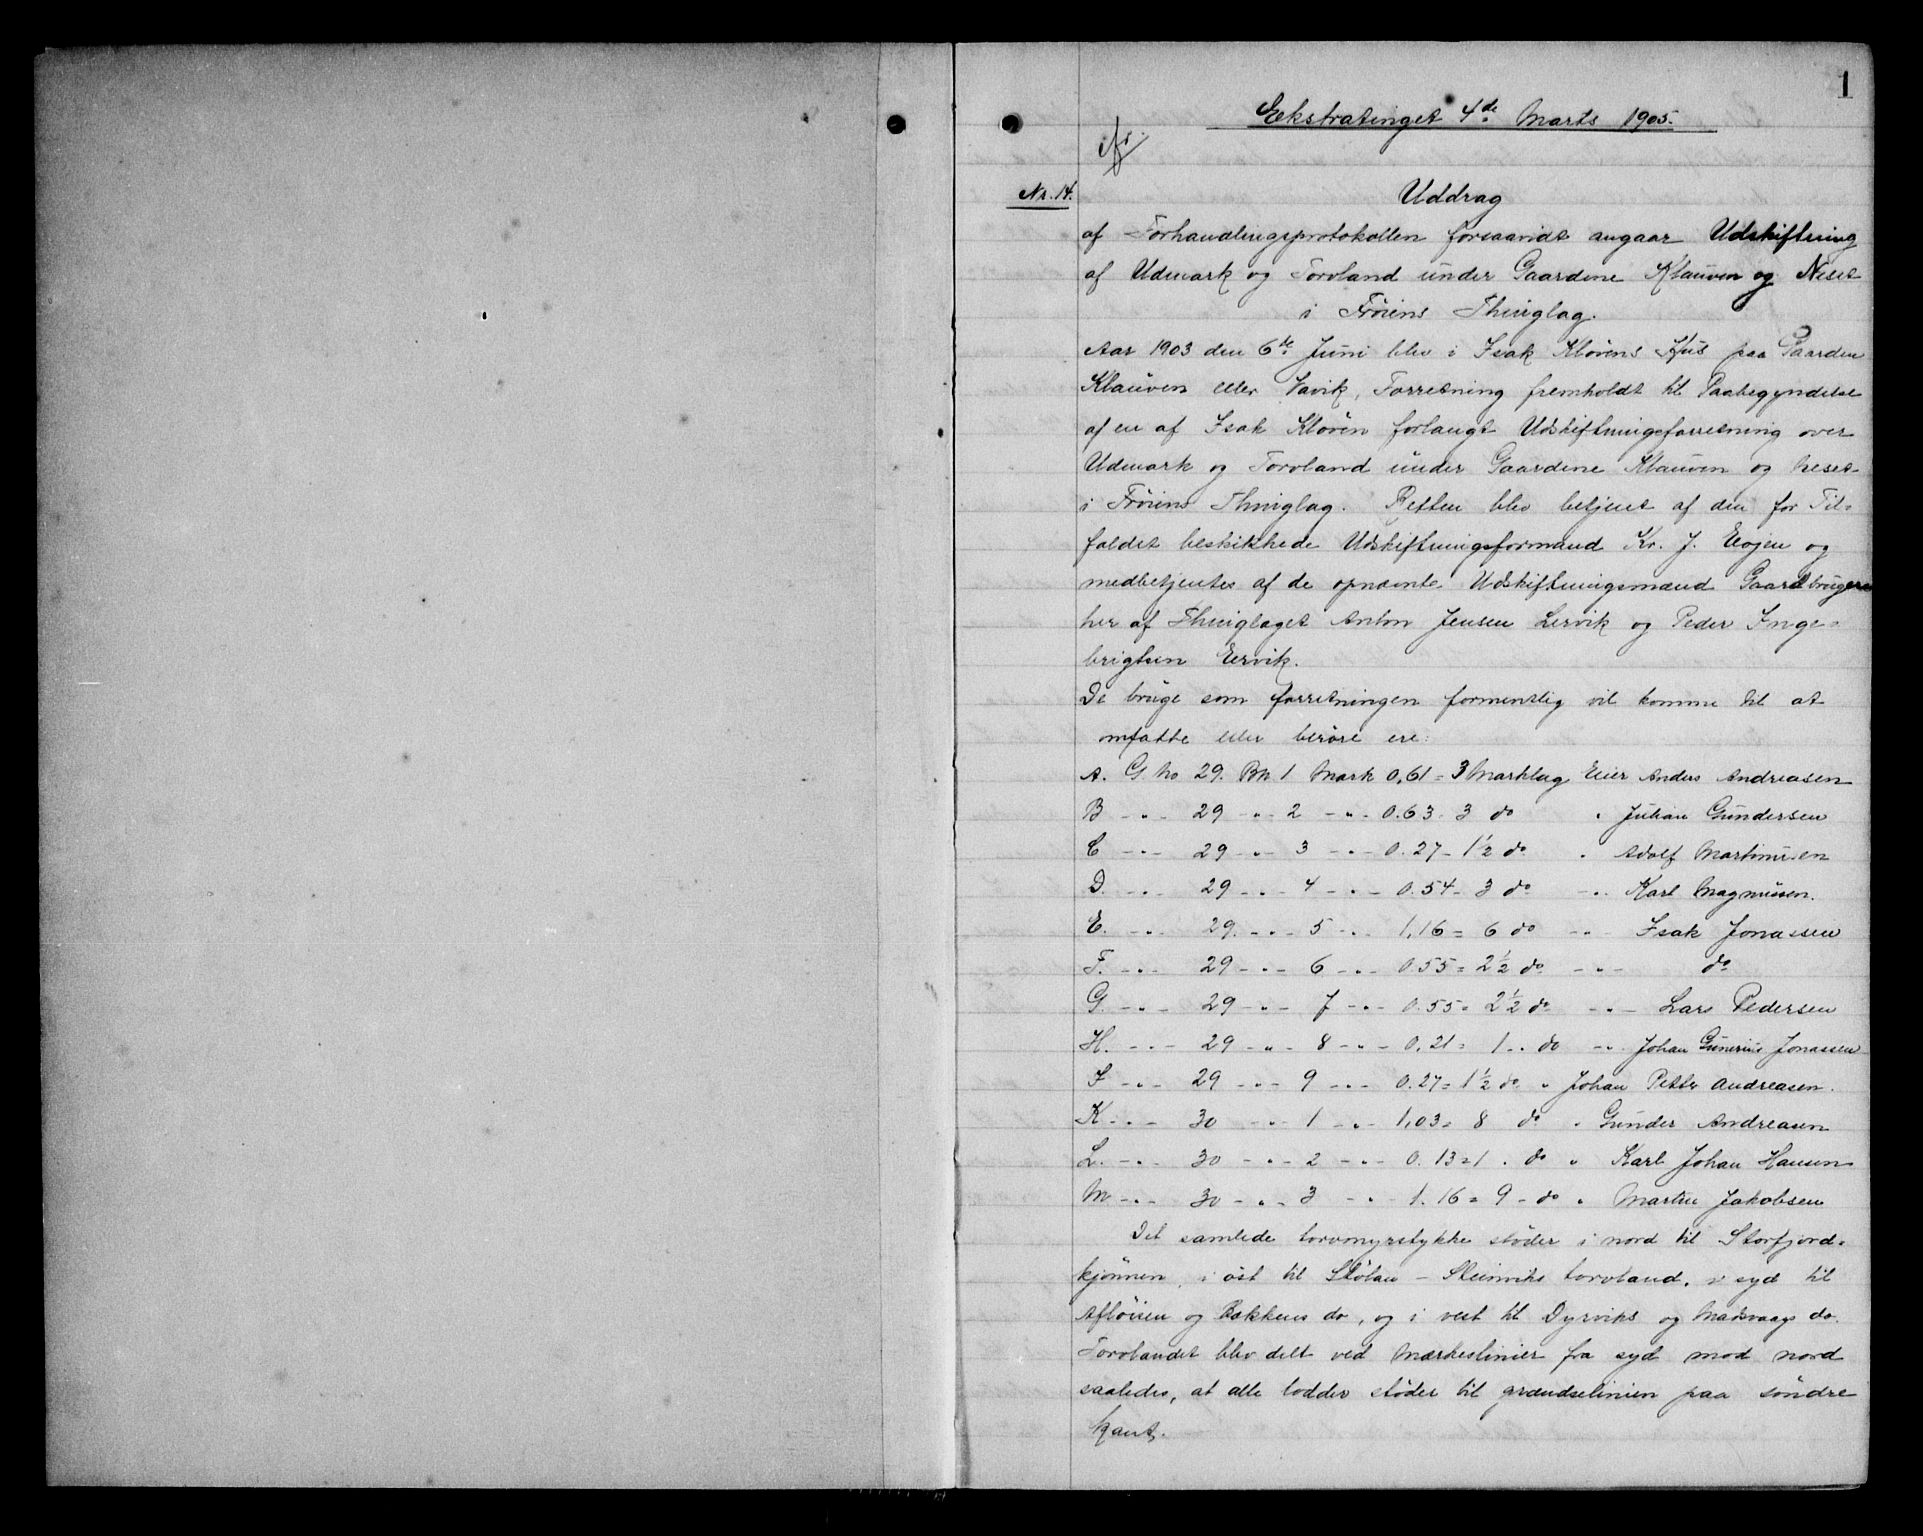 1
Ekstratinget 4de Marts 1905.
Nr. 14.
Uddrag
af Forhandlingsprotokollen forsaavidt angaar Udskiftning
af Udmark og Torvland under Gaardene Klauven og Neset
i Frøiens Thinglag.
Aar 1903 den 6te Juni blev i Isak Kløvens Hus paa Gaarden
Klauven eller Vavik, Forretning fremholdt til Paabegyndelse
af en af Isak Kløven forlangt Udskiftningsforretning over
Udmark og Torvland under Gaardene Klauven og Neset
i Frøiens Thinglag. Retten blev betjent af den for Til-
fældet beskikkede Udskiftningsformand Kr. J. Evjen og
medbetjentes af de opnævnte Udskiftningsmænd Gaardbrugere
her af Thinglaget Anton Jensen Lervik og Peder Inge-
brigtsen Ervik.
De bruge som forretningen formentlig vil komme til at
omfatte eller berøre ere:
A. G No 29. Bn 1 Mark 0,61 = 3 Marklag Eier Anders Andreasen
B -"- 29 -"- 2 -"- 0.63 - 3 do " Julian Gundersen
C -"- 29 -"- 3 -"- 0.27 - 1½ do " Adolf Martinusen
D. -"- 29 -"- 4 -"- 0.54 - 3 do -"- Karl Magnussen.
E. -"- 29. -"- 5 -"- 1,16 = 6 do -"- Isak Jonassen
F. -"- 29 -"- 6 -"- 0.55 = 2½ do -"- do
G. -"- 29 -"- 7 -"- 0.55 = 2½ do -"- Lars Pedersen
H. -"- 29 -"- 8 -"- 0,21 = 1 " do -"- Johan Gunerius Jonassen
I -"- 29 -"- 9 -"- 0.27 = 1½ do " Johan Petter Andreasen.
K -"- 30 -"- 1 -"- 1,03 = 8 do " Gunder Andreasen
L. -"- 30 -"- 2 -"- 0.13 = 1 " do " Karl Johan Hansen
M -"- 30 -"- 3 -"- 1.16 = 9 - do " Martin Jakobsen
Det samlede torvmyrstykke støder i nord til Storfjord-
kjønnen, i øst til Stølan - Steinviks torvland, i syd til
Afløisen og Bakkens do, og i vest til Dyrviks og Madsvaags do.
Torvlandet blev delt ved Mærkeslinier fra syd mod nord
saaledes, at alle lodder støder til grændselinien paa søndre
Kant.